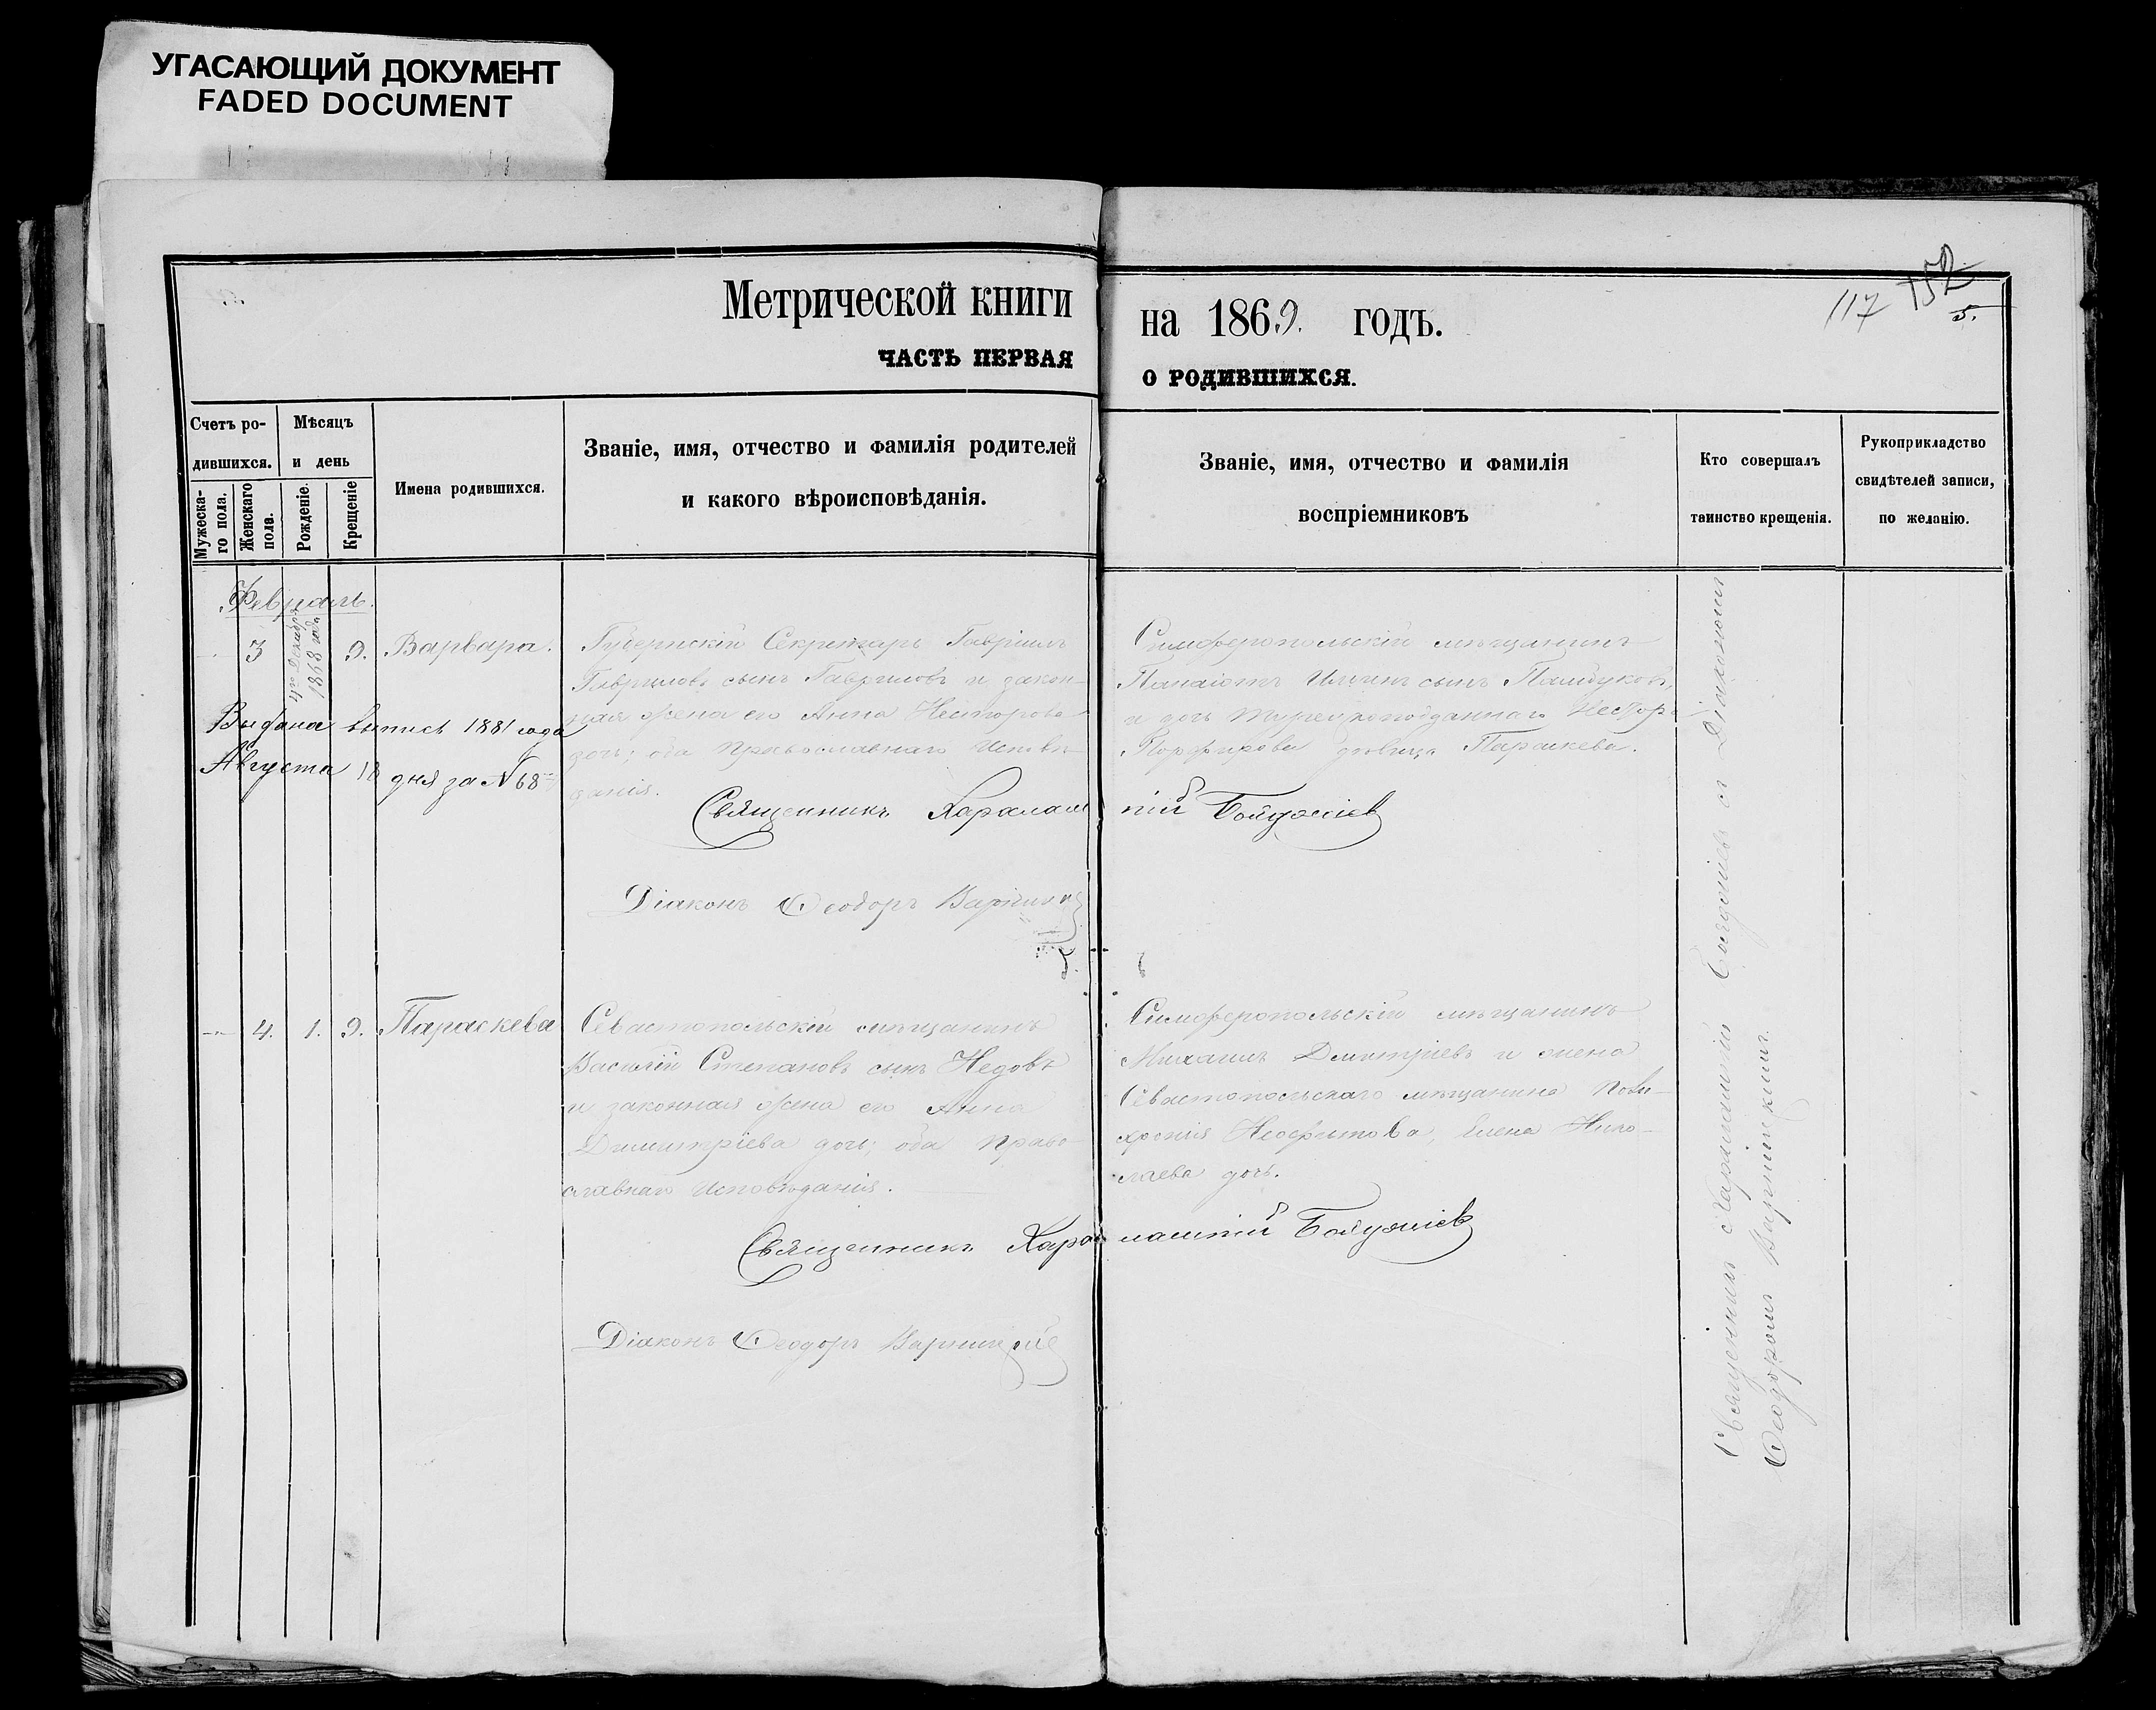 УГАСАЮЩИЙ ДОКУМЕНТ
FADED DOCUMENT
Метрической книги
на 1869. годъ.
117 152
5.
ЧАСТЬ ПЕРВАЯ
О РОДИВШИХСЯ.
Счетъ ро-
дившихся.
Мѣсяцъ
и день
Мужеска-
го пола.
Женскаго
пола.
Рожденіе.
Крещеніе
Имена родившихся.
Званіе, имя, отчество и фамилія родителей
и какого вѣроисповѣданія.
Званіе, имя, отчество и фамилія
воспріемниковъ
Кто совершалъ
таинство крещенія.
Рукоприкладство
свидѣтелей записи,
по желанію.
Февраль.
3
4го Декабря
1868 года
9.
Варвара.
Губернскій Секретарь Гавріилъ
Гавриловъ сынъ Гавриловъ и закон-
ная жена его Анна Несторова
дочь; оба Православнаго Исповѣ-
данія.
Выдана выпись 1881 года
Августа 18 дня за № 68
Симферопольскій мѣщанинъ
Панаіотъ Ильинъ сынъ
и дочь турецкоподданнаго Нестора
Порфирова дѣвица Параскева.
Священникъ Харалампій
Діаконъ Ѳеодоръ
4. 1. 9. Параскева
Севастопольскій мѣщанинъ
Василій Степановъ сынъ Недовъ
и законная жена его Анна
Димитріева дочь; оба Право-
славнаго Исповѣданія.
Симферопольскій мѣщанинъ
Михаилъ Дмитріевъ и жена
Севастопольскаго мѣщанина
Неофитова, Елена Нико-
лаева дочь.
Священникъ Харалампій
Діаконъ Ѳеодоръ
Священникъ Харалампій съ Діакономъ
Ѳеодоромъ